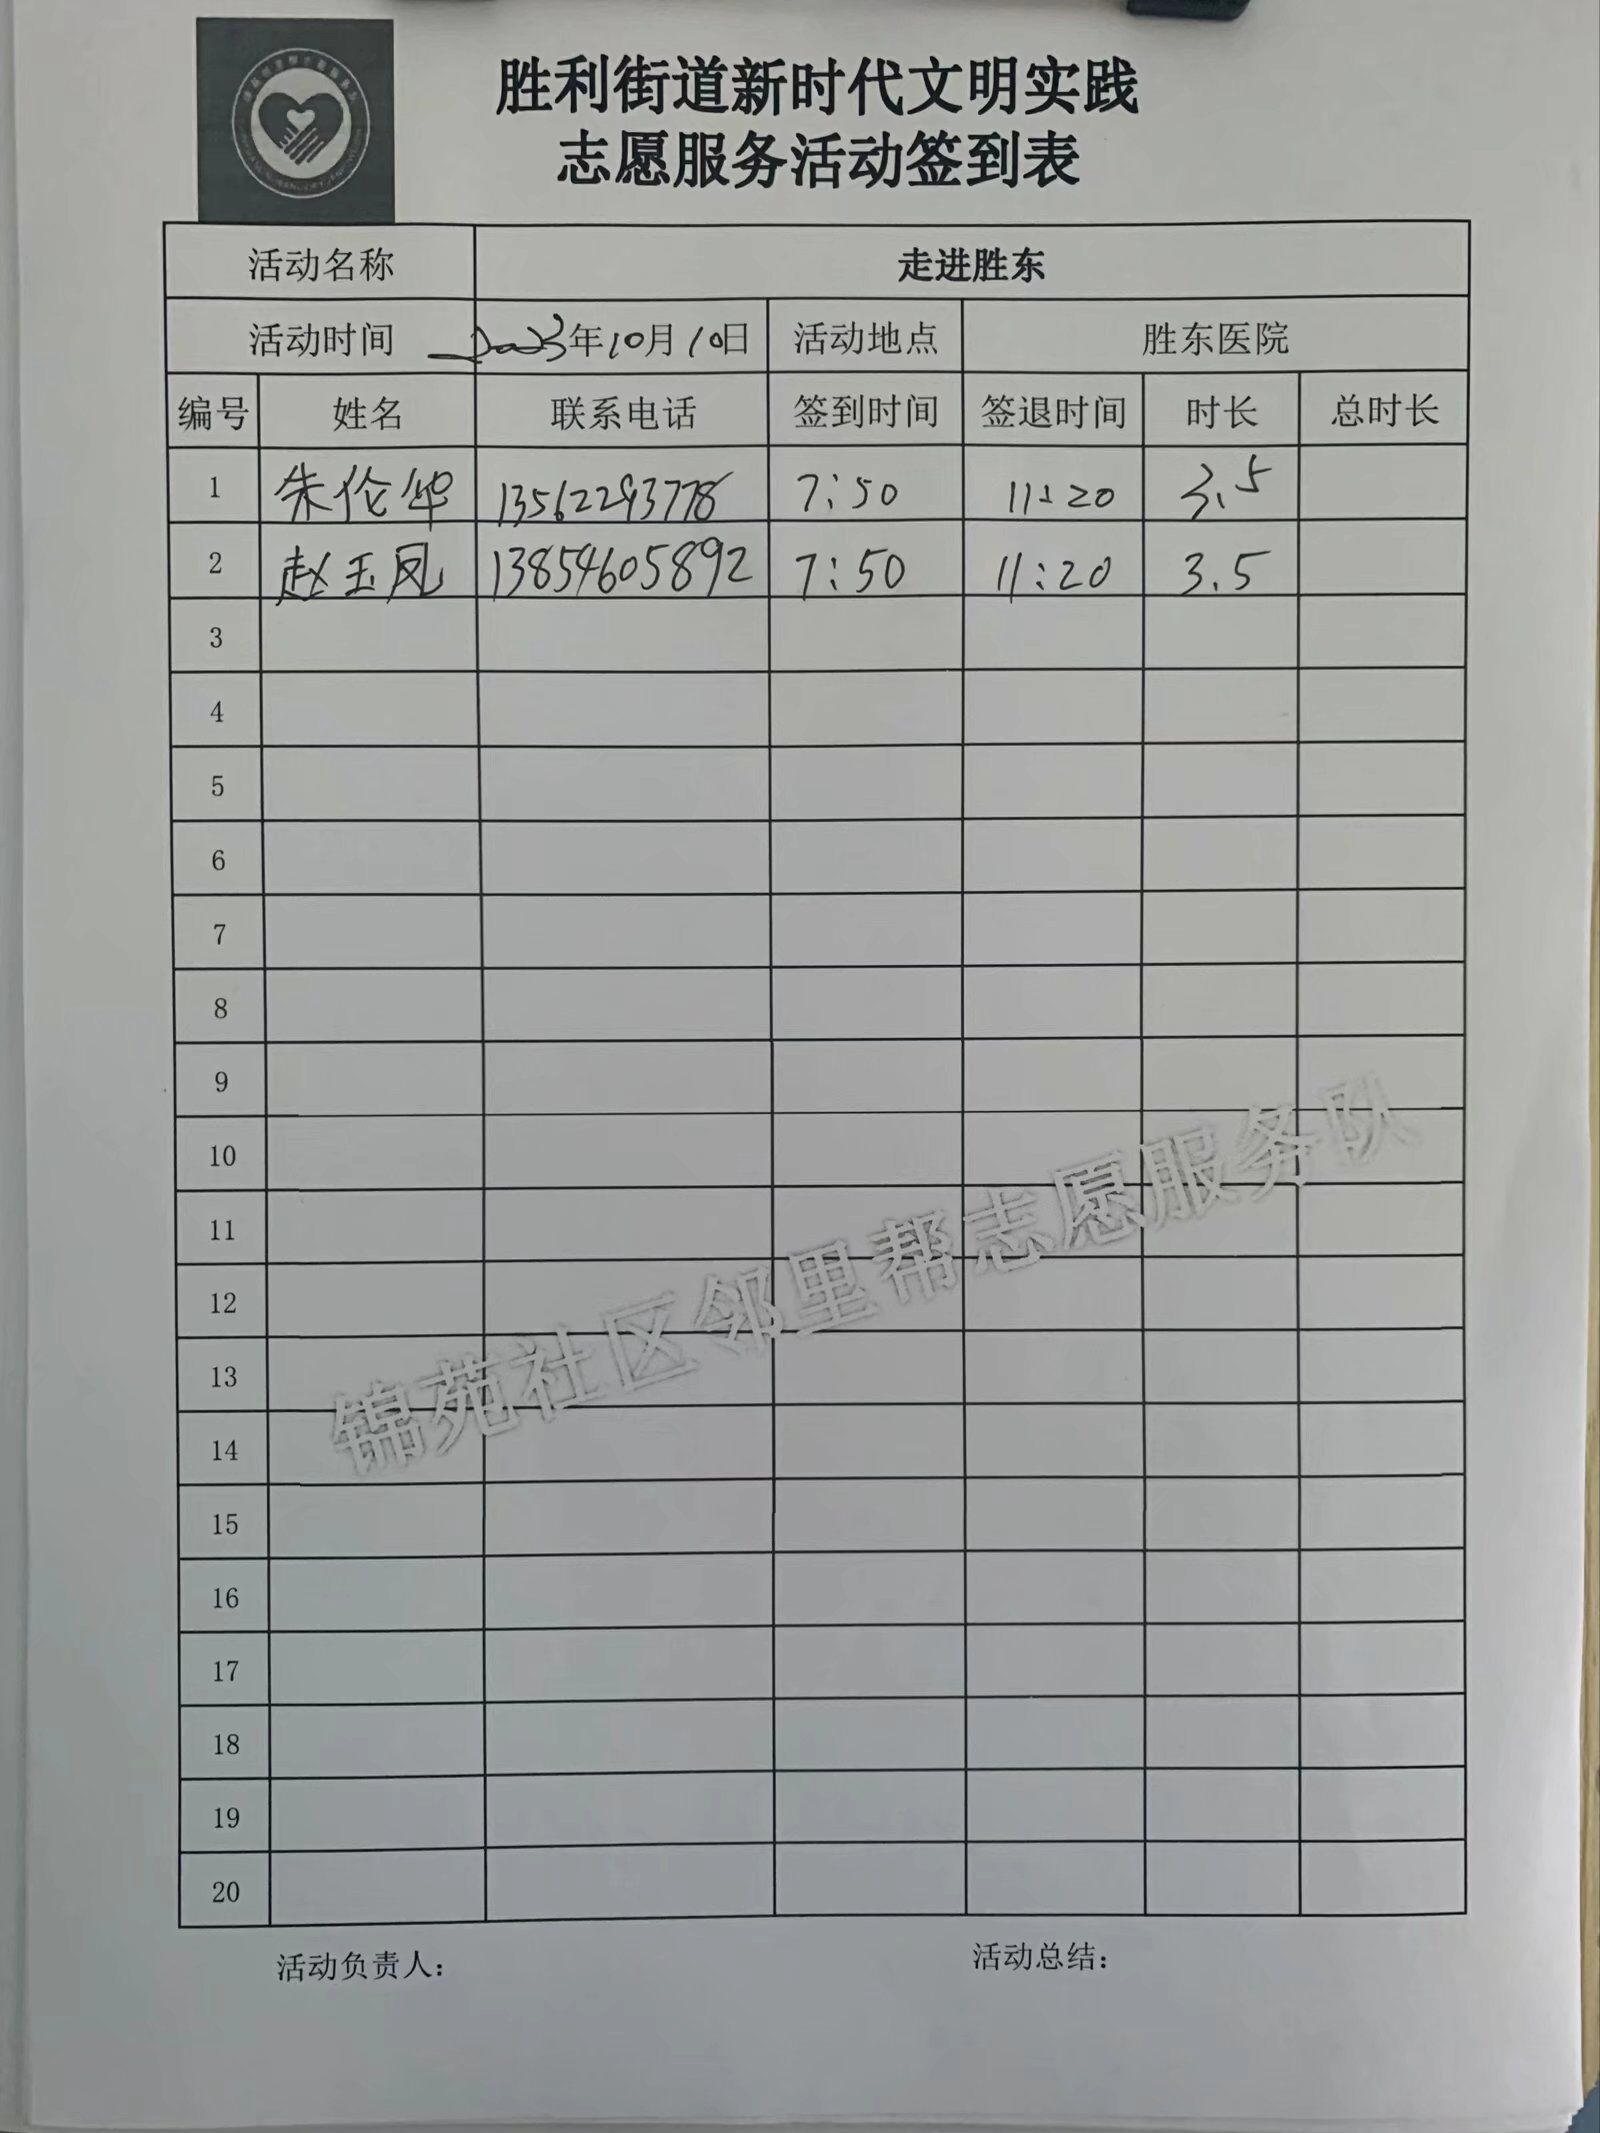 胜利街道新时代文明实践
志愿服务活动签到表
活动名称 走进胜东
活动时间 2023年10月10日 活动地点 胜东医院
编号 姓名 联系电话 签到时间 签退时间 时长 总时长
1 朱伦华 13562293778 7:50 11:20 3.5
2 赵玉凤 13854605892 7:50 11:20 3.5
3
4
5
6
7
8
9
10
11
12
13
14
15
16
17
18
19
20
锦苑社区邻里帮志愿服务队
活动负责人: 活动总结: